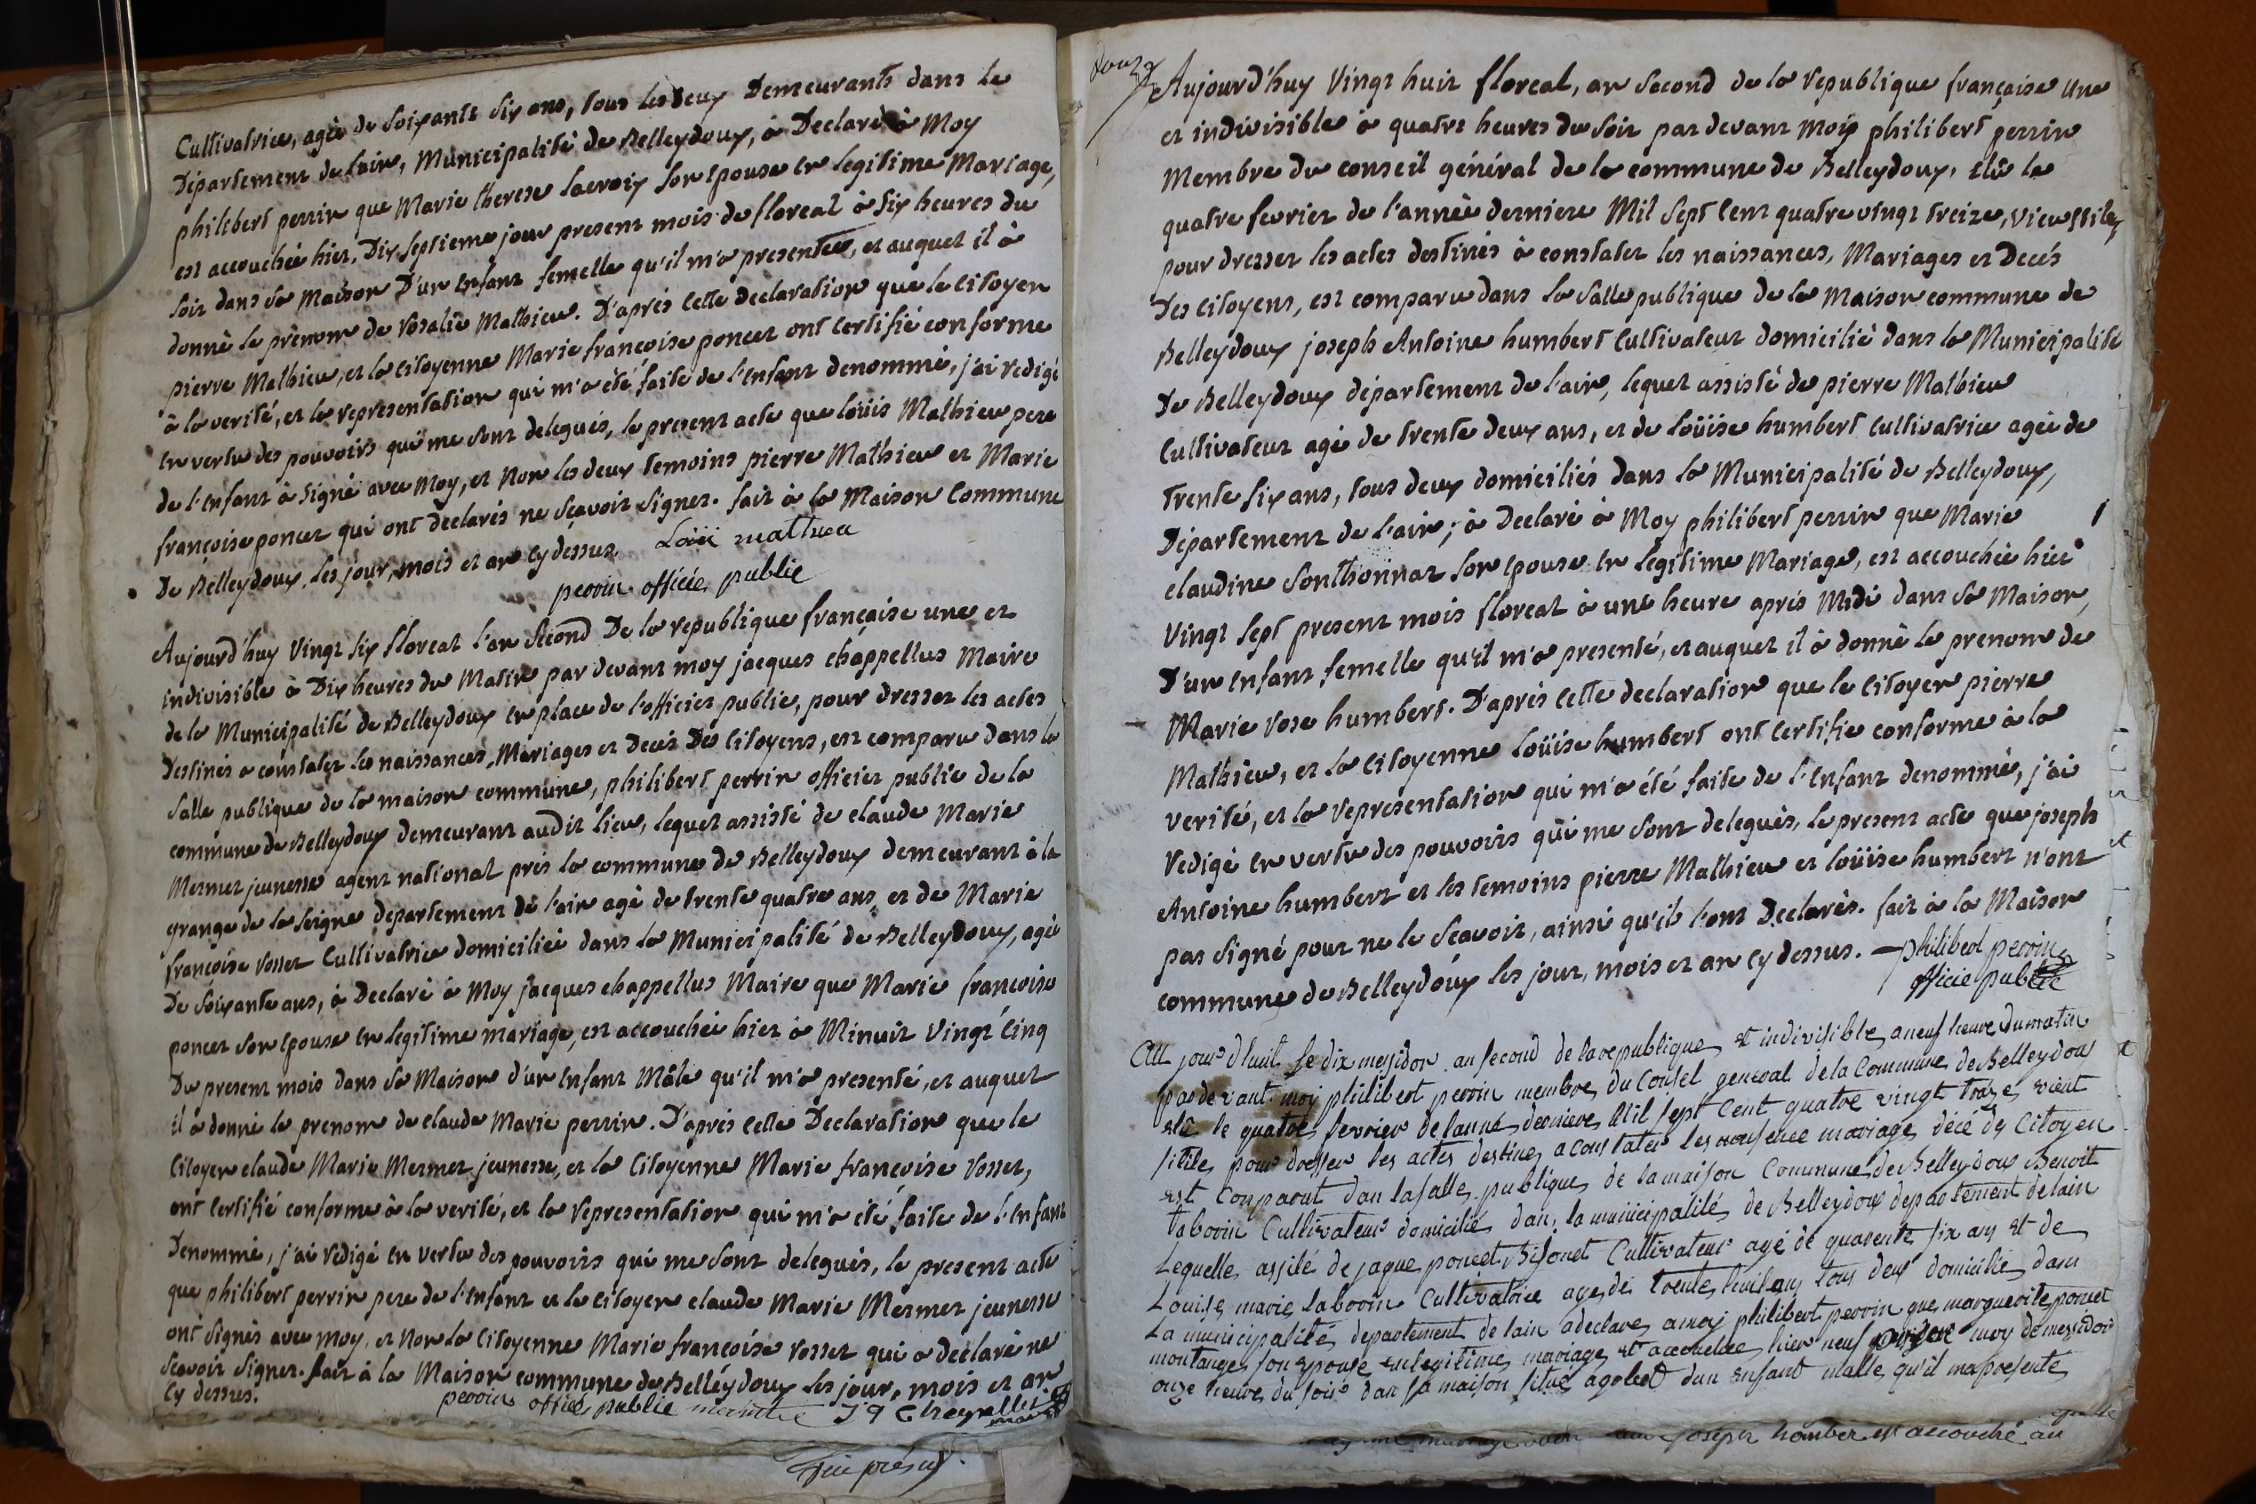 Cultivatrice, agèe de soixante six ans, tous les deux Demeurants dans le
Département de l'ain, Municipalité de Belleydoux, à Declaré à Moy
philibert perrin que Marie therese lacroix son epouse en legitime Mariage,
est accouchée hier, Dix septieme jour present mois de floreal à six heures du
soir dans sa Maison D'un enfant femelle qu'il m'a presentée, et auquel il à
donné le prènom de rosalie Mathieu. D'après cette declaration que le citoyen
pierre Mathieu, et la citoyenne Marie françoise poncet ont certifié conforme
à la verité, et la representation qui m'a été faite de l'enfant denommé, j'ai redigé
en vertu des pouvoirs qui me sont delegués, le present acte que loüis Mathieu pere
de l'enfant à signé avec moy, et Non les deux temoins pierre Mathieu et Marie
françoise poncet qui ont declarés ne sçavoir signer. fait à la Maison Commune
De Belleydoux, les jour, mois et an cy dessus. Loüi mathieu
perrin officie public
Aujourd'huy Vingt six floreal l'an second De la republique française une et
indivisible à Dix heures du Matin par devant moy jacques chappellus Maire
de la Municipalité de Belleydoux en place de l'officier public, pour dresser les actes
destinés a constater les naissances, Mariages et Decès Des citoyens, est comparu dans la
salle publique de la maison commune, philibert perrin officier public de la
commune de Belleydoux demeurant audit lieu, lequel assisté de claude Marie
Mermet jeunesse agent national près la commune de Belleydoux demeurant à la
grange de la seigne departement de l'ain agè de trente quatre ans, et de Marie
françoise rosset Cultivatrice domiciliée dans la Municipalité de Belleydoux, agèe
De soixante ans, à Declaré à Moy jacques chappellus Maire que Marie françoise
poncet son epouse en legitime mariage, est accouchée hier à Minuit vingt cinq
Du present mois dans sa Maison d'un enfant Mâle qu'il m'a presenté, et auquel
il a donné le prenom de claude Marie perrin. D'après cette Declaration que le
Citoyen claude Marie Mermet jeunesse, et la Citoyenne Marie françoise rosset,
ont certifié conforme à la verité, et la representation qui m'a été faite de l'enfant
Denommé, j'ai redigé en vertu des pouvoirs qui me sont delegués, le present acte
que philibert perrin pere de l'enfant et le citoyen claude Marie Mermet jeunesse
ont signés avec moy, et Non la Citoyenne Marie françoise rosset qui a declaré ne
sçavoir signer. fait à la Maison commune de Belleydoux les jour, mois et an
cy dessus. perrin officie public
douze
Aujourd'huy Vingt huit floreal, an second de la republique française une
et indivisible à quatre heures du soir par devant moy philibert perrin
Membre du conseil général de la commune de Belleydoux, élu le
quatre fevrier de l'année derniere Mil sept cent quatre vingt treize, vieu stile,
pour dresser les actes destinés à constater les naissances, Mariages et Decés
Des citoyens, est comparu dans la salle publique de la Maison commune de
Belleydoux joseph Antoine humbert Cultivateur domicilié dans la Municipalité
De Belleydoux département de l'ain, lequel assisté de pierre Mathieu
Cultivateur agé de trente deux ans, et de loüise humbert Cultivatrice agée de
trente six ans, tous deux domiciliés dans la Municipalité de Belleydoux,
Département de l'ain, à Declaré à Moy philibert perrin que Marie
claudine Sonthonnax son epouse en legitime Mariage, est accouchée hier
Vingt sept present mois floreal à une heure après Midi dans sa Maison,
D'un enfant femelle qu'il m'a presenté, et auquel il à donné le prenom de
Marie rose humbert. D'après cette declaration que le citoyen pierre
Mathieu, et la citoyenne loüise humbert ont certifie conforme à la
verité, et la representation qui m'a été faite de l'enfant denommé, j'ai
redigé en vertu des pouvoirs qui me sont delegués, le present acte que joseph
Antoine humbert et les temoins pierre Mathieu et loüise humbert n'ont
pas signé pour ne le sçavoir, ainsi qu'ils l'ont Declarés. fait à la Maison
commune de Belleydoux les jour, mois et an cy dessus. philibert perrin
officie public
Au jour d'huit le dix messidor an second de la republique et indivisible a neuf heure du matin
par devant moy philibert perrin membre du Consel general de la Commune de Belleydou
elü le quatre fevrier de lanné derniere Mil sept cent quatre vingt traize vieut
stile pour dresser les actes destines a constater les naisence mariage décé des Citoyen
est Comparut dan la salle publique de la maison Commune de Belleydoux Benoit
taborin Cultivateur domicilié dans la municipalité de Belleydoux departement de lain
Lequelle assité de jaque poncet Bisonet Cultivateur agé de quarente six ans et de
Louise marie taborin Cultivatrice agé de trente huit ans tous deux domicilié dans
La municipalité departement de lain a declare a moy philibert perrin que marguerite poncet
montange son epouse en legitime mariage et accouchee hier neuf moy de messidor
onze heure du soir dan sa maison situé a gobet dun enfant malle qu'il ma presente
joseph homber est accouché au